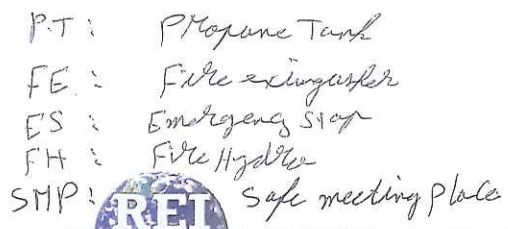 P.T : Propane Tank
FE : Fire exingusher
ES : Emergency stop
FH : Fire Hydre
SMP : Safe meeting place
REI